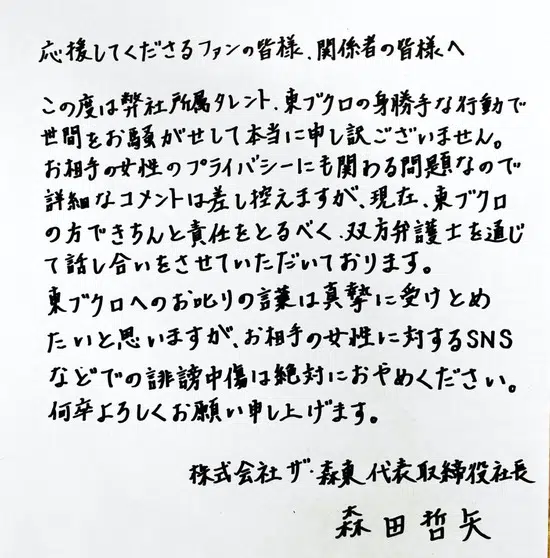 応援してくださるファンの皆様、関係者の皆様へ
この度は弊社所属タレント、東ブクロの身勝手な行動で
世間をお騒がせして本当に申し訳ございません。
お相手の女性のプライバシーにも関わる問題なので
詳細なコメントは差し控えますが、現在、東ブクロ
の方できちんと責任をとるべく、双方弁護士を通じ
て話し合いをさせていただいております。
東ブクロへのお叱りの言葉は真摯に受けとめ
たいと思いますが、お相手の女性に対するSNS
などでの誹謗中傷は絶対におやめください。
何卒よろしくお願い申し上げます。
株式会社 ザ・森東 代表取締役社長
森田哲矢